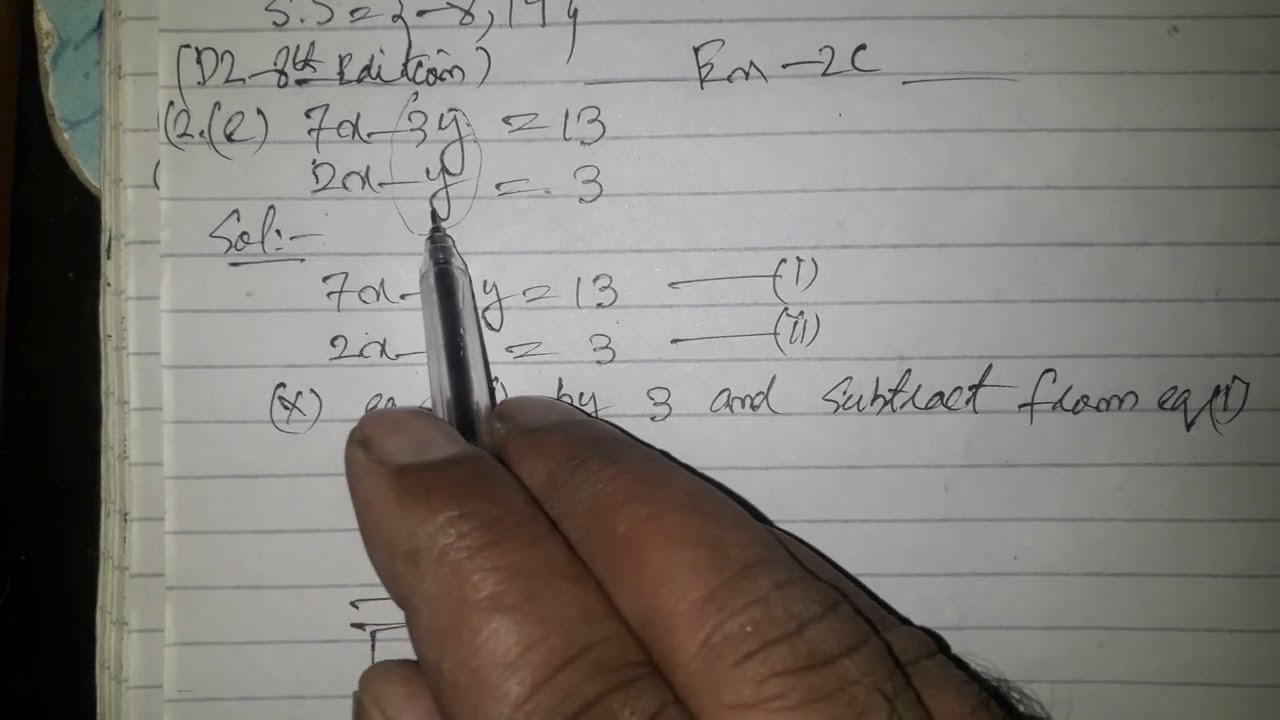 S.S = {-8, 14}
(D2-8th Edition) Ex-2C
(2.(e) 7x-3y = 13
2x-y = 3
Sol:-
7x- y = 13 (I)
2x- = 3 (II)
(x) eq by 3 and Subtract from eq(I)